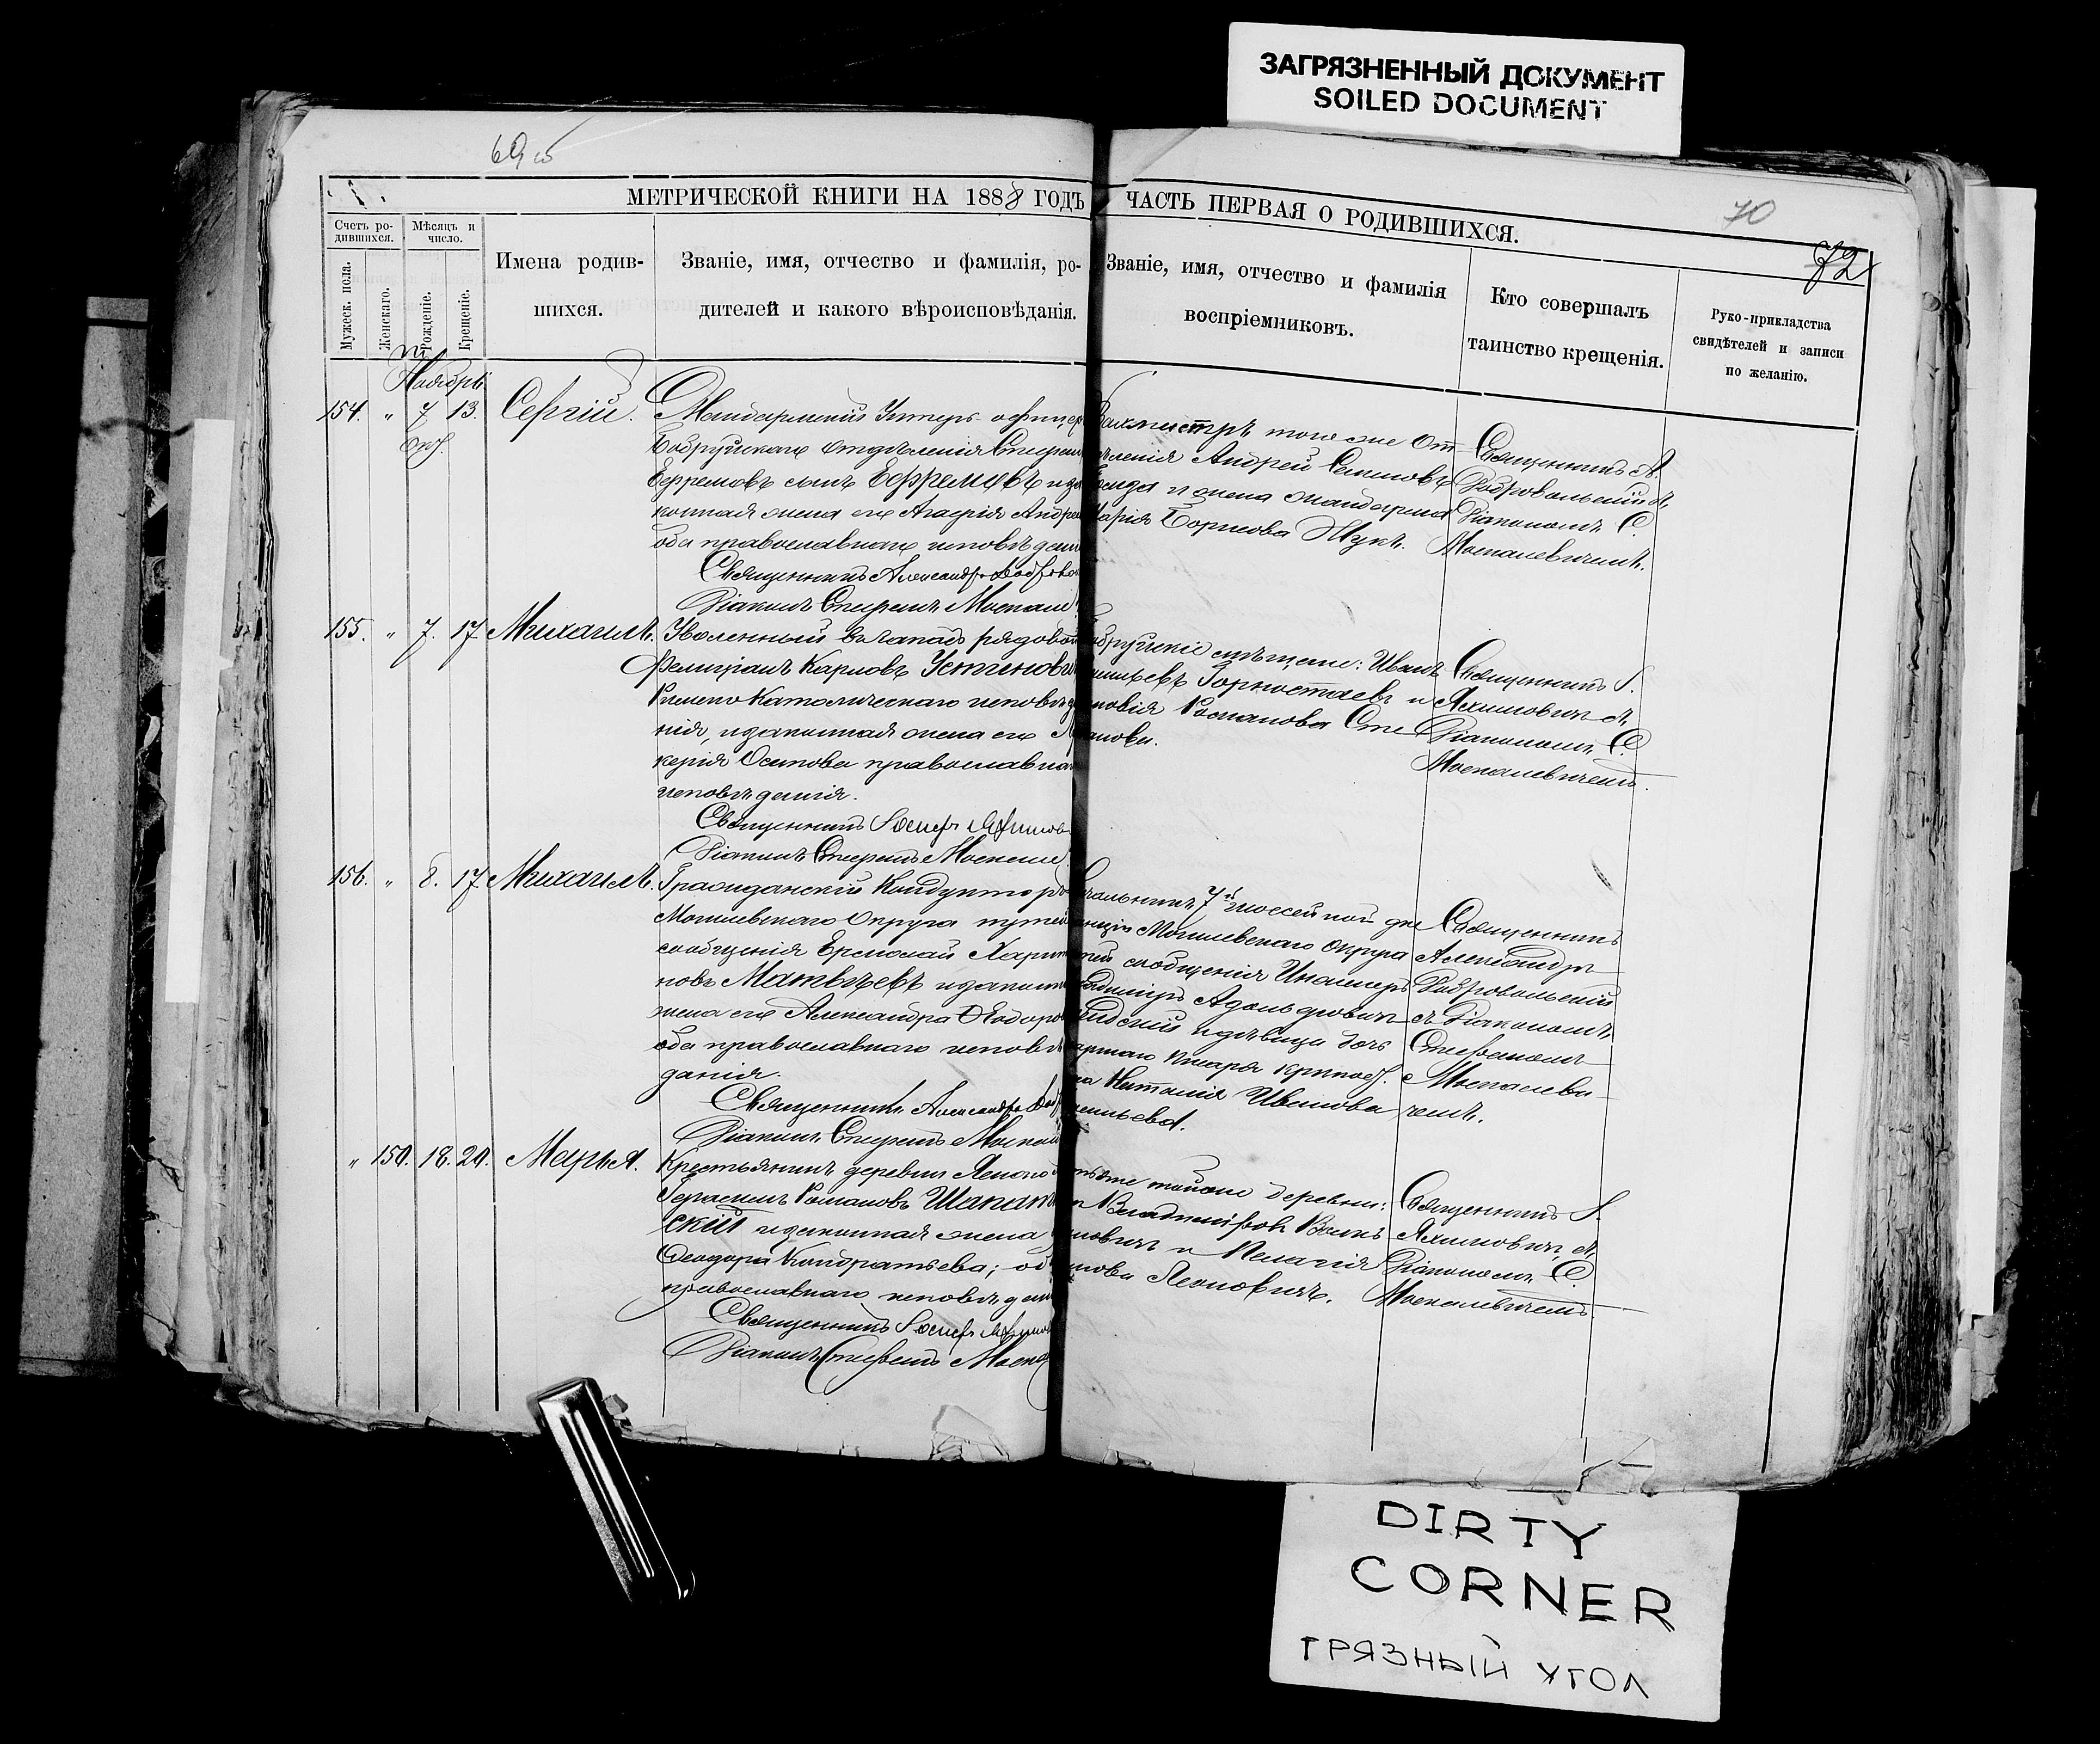 ЗАГРЯЗНЕННЫЙ ДОКУМЕНТ
SOILED DOCUMENT
69 об
70
72
МЕТРИЧЕСКОЙ КНИГИ НА 1888 ГОДЪ
ЧАСТЬ ПЕРВАЯ О РОДИВШИХСЯ.
Счетъ ро-
дившихся.
Мужеск. пола.
Женскаго.
Мѣсяцъ и
число.
Рожденіе.
Крещеніе.
Имена родив-
шихся.
Званіе, имя, отчество и фамилія, ро-
дителей и какого вѣроисповѣданія.
Званіе, имя, отчество и фамилія
воспріемниковъ.
Кто совершалъ
таинство крещенія.
Руко-прикладства
свидѣтелей и записи
по желанію.
Ноябрь
154. " 7 13. Сергій.
Жандармскій Унтеръ-офицер
Бобруйскаго отдѣленія
Ефремовъ сынъ Ефремовъ и за
конная жена его Агафія Андре
оба православнаго исповѣдан
Священникъ Александръ Добров
Діаконъ Стефанъ Москале
Вахмистръ того же От
дѣленія Андрей Семеновъ
и жена жандарма
Марія Борисова Жукъ.
Священникъ А.
Добровольскій съ
Діакономъ С.
Москалевичемъ.
155. " 7. 17 Михаилъ.
Уволенный въ запасъ рядовой
Фелиціанъ Карловъ Устинови
Римско Католическаго исповѣд
нія, и законная жена его
керія Осипова православна
исповѣданія.
Священникъ Іосифъ Яхимов
Діаконъ Стефанъ Москале
бруйскіе мѣщане: Иванъ
сильевъ Горностаевъ и
новія Романова Сте
панова.
Священникъ І.
Яхимовичъ съ
Діакономъ С.
Москалевичемъ.
156. " 8. 17 Михаилъ.
Гражданскій Кондукторъ
Могилевскаго Округа путей
сообщенія Ермолай Харит
новъ Матвѣевъ и законн
жена его Александра Ѳеодоро
оба православнаго исповѣ
данія.
Священникъ Александръ Доб
Діаконъ Стефанъ Москал
чальникъ 7й шоссейной ди
станціи Могилевскаго Округа
тей сообщенія Инженеръ
адиміръ Адольфовичъ
и дѣвица дочь
писаря крѣпост.
на Наталія Иванова
сильева.
Священникъ
Александръ
Добровольскій
съ Діакономъ
Стефаномъ
Москалеви
чемъ.
" 150. 18. 20. Марья.
Крестьянинъ деревни
Герасимъ Романовъ Шапат
скій и законная жена
Ѳеодора Кондратьева; об
православнаго исповѣдан
Священникъ Іосифъ Яхимов
Діаконъ Стефанъ Моска
деревни:
Владиміровъ
новичъ и Пелагія
нова Леоновичъ.
Священникъ І.
Яхимовичъ съ
Діакономъ С.
Москалевичемъ.
DIRTY
CORNER
ГРЯЗНЫЙ УГОЛ